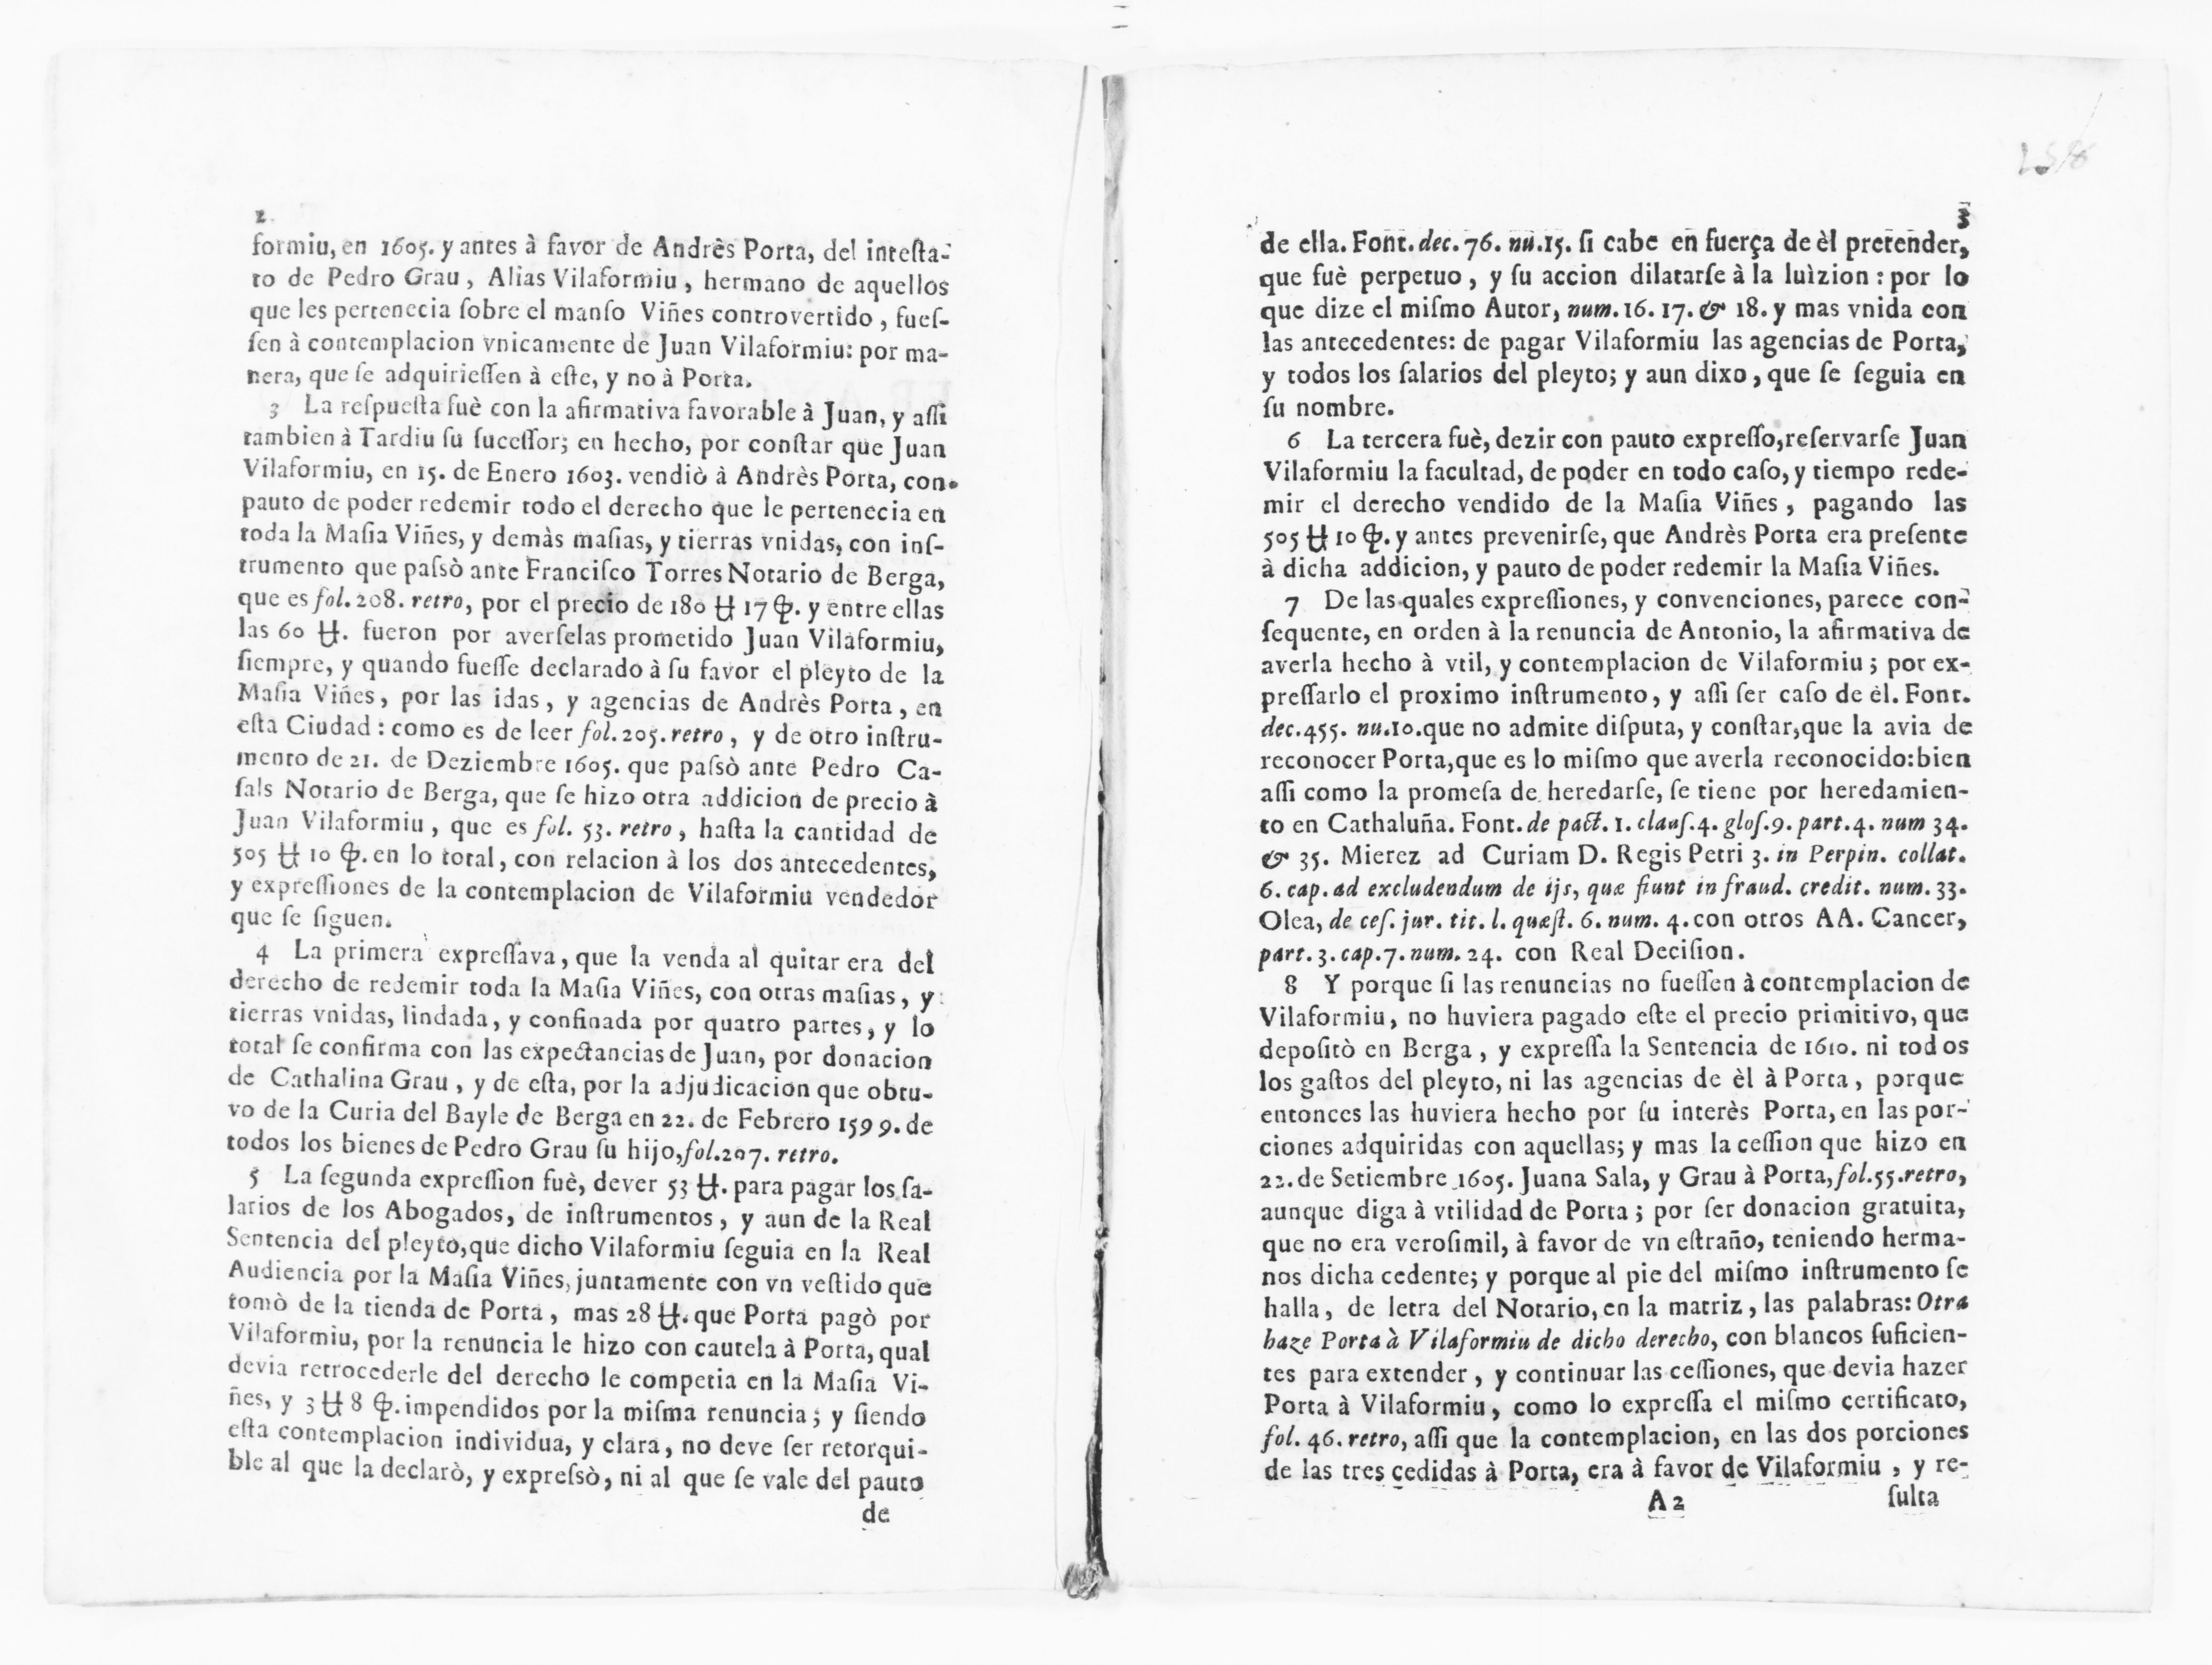 2
formiu, en 1605. y antes à favor de Andrès Porta, del inteſta-
to de Pedro Grau, Alias Vilaformiu, hermano de aquellos
que les pertenecia ſobre el manſo Viñes controvertido, fueſ-
ſen à contemplacion vnicamente de Juan Vilaformiu: por ma-
nera, que ſe adquirieſſen à eſte, y no à Porta.
3 La reſpueſta fuè con la afirmativa favorable à Juan, y aſſi
tambien à Tardiu ſu ſuceſſor; en hecho, por conſtar que Juan
Vilaformiu, en 15. de Enero 1603. vendiò à Andrès Porta, con
pauto de poder redemir todo el derecho que le pertenecia en
toda la Maſia Viñes, y demàs maſias, y tierras vnidas, con inſ-
trumento que paſsò ante Franciſco Torres Notario de Berga,
que es fol. 208. retro, por el precio de 180 ₶ 17 ẞ. y entre ellas
las 60 ₶. fueron por averſelas prometido Juan Vilaformiu,
ſiempre, y quando fueſſe declarado à ſu favor el pleyto de la
Maſia Viñes, por las idas, y agencias de Andrès Porta, en
eſta Ciudad: como es de leer fol. 205. retro, y de otro inſtru-
mento de 21. de Deziembre 1605. que paſsò ante Pedro Ca-
ſals Notario de Berga, que ſe hizo otra addicion de precio à
Juan Vilaformiu, que es fol. 53. retro, haſta la cantidad de
505 ₶ 10 ẞ. en lo total, con relacion à los dos antecedentes,
y expreſſiones de la contemplacion de Vilaformiu vendedor
que ſe ſiguen.
4 La primera expreſſava, que la venda al quitar era del
derecho de redemir toda la Maſia Viñes, con otras maſias, y
tierras vnidas, lindada, y confinada por quatro partes, y lo
total ſe confirma con las expectancias de Juan, por donacion
de Cathalina Grau, y de eſta, por la adjudicacion que obtu-
vo de la Curia del Bayle de Berga en 22. de Febrero 1599. de
todos los bienes de Pedro Grau ſu hijo, fol. 207. retro.
5 La ſegunda expreſſion fuè, dever 53 ₶. para pagar los ſa-
larios de los Abogados, de inſtrumentos, y aun de la Real
Sentencia del pleyto, que dicho Vilaformiu ſeguia en la Real
Audiencia por la Maſia Viñes, juntamente con vn veſtido que
tomò de la tienda de Porta, mas 28 ₶. que Porta pagò por
Vilaformiu, por la renuncia le hizo con cautela à Porta, qual
devia retrocederle del derecho le competia en la Maſia Vi-
ñes, y 3 ₶ 8 ẞ. impendidos por la miſma renuncia; y ſiendo
eſta contemplacion individua, y clara, no deve ſer retorqui-
ble al que la declarò, y expreſsò, ni al que ſe vale del pauto
de
3
de ella. Font. dec. 76. nu. 15. ſi cabe en fuerça de èl pretender,
que fuè perpetuo, y ſu accion dilatarſe à la luìzion: por lo
que dize el miſmo Autor, num. 16. 17. & 18. y mas vnida con
las antecedentes: de pagar Vilaformiu las agencias de Porta,
y todos los ſalarios del pleyto; y aun dixo, que ſe ſeguia en
ſu nombre.
6 La tercera fuè, dezir con pauto expreſſo, reſervarſe Juan
Vilaformiu la facultad, de poder en todo caſo, y tiempo rede-
mir el derecho vendido de la Maſia Viñes, pagando las
505 ₶ 10 ẞ. y antes prevenirſe, que Andrès Porta era preſente
à dicha addicion, y pauto de poder redemir la Maſia Viñes.
7 De las quales expreſſiones, y convenciones, parece con-
ſequente, en orden à la renuncia de Antonio, la afirmativa de
averla hecho à vtil, y contemplacion de Vilaformiu; por ex-
preſſarlo el proximo inſtrumento, y aſſi ſer caſo de èl. Font.
dec. 455. nu. 10. que no admite diſputa, y conſtar, que la avia de
reconocer Porta, que es lo miſmo que averla reconocido: bien
aſſi como la promeſa de heredarſe, ſe tiene por heredamien-
to en Cathaluña. Font. de pact. 1. clauſ. 4. gloſ. 9. part. 4. num 34.
& 35. Mierez ad Curiam D. Regis Petri 3. in Perpin. collat.
6. cap. ad excludendum de ijs, quæ fiunt in fraud. credit. num. 33.
Olea, de ceſ. jur. tit. l. quæſt. 6. num. 4. con otros AA. Cancer,
part. 3. cap. 7. num. 24. con Real Deciſion.
8 Y porque ſi las renuncias no fueſſen à contemplacion de
Vilaformiu, no huviera pagado eſte el precio primitivo, que
depoſitò en Berga, y expreſſa la Sentencia de 1610. ni todos
los gaſtos del pleyto, ni las agencias de èl à Porta, porque
entonces las huviera hecho por ſu interès Porta, en las por-
ciones adquiridas con aquellas; y mas la ceſſion que hizo en
22. de Setiembre 1605. Juana Sala, y Grau à Porta, fol. 55. retro,
aunque diga à vtilidad de Porta; por ſer donacion gratuita,
que no era veroſimil, à favor de vn eſtraño, teniendo herma-
nos dicha cedente; y porque al pie del miſmo inſtrumento ſe
halla, de letra del Notario, en la matriz, las palabras: Otra
haze Porta à Vilaformiu de dicho derecho, con blancos ſuficien-
tes para extender, y continuar las ceſſiones, que devia hazer
Porta à Vilaformiu, como lo expreſſa el miſmo certificato,
fol. 46. retro, aſſi que la contemplacion, en las dos porciones
de las tres cedidas à Porta, era à favor de Vilaformiu, y re-
A 2 ſulta